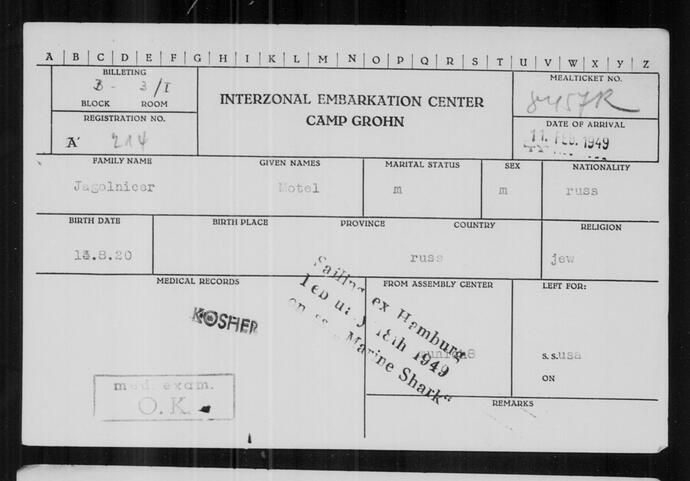 A B C D E F G H I K L M N O P Q R S T U V W X Y Z
BILLETING
3 - 3/I
BLOCK ROOM
REGISTRATION NO.
A' 214
INTERZONAL EMBARKATION CENTER
CAMP GROHN
MEALTICKET NO.
8457R
DATE OF ARRIVAL
11. FEB. 1949
FAMILY NAME GIVEN NAMES MARITAL STATUS SEX NATIONALITY
Jagolnicer Motel m m russ
BIRTH DATE BIRTH PLACE PROVINCE COUNTRY RELIGION
13.8.20 russ jew
MEDICAL RECORDS FROM ASSEMBLY CENTER LEFT FOR:
KOSHER
Sailing ex Hamburg
February 18th 1949
on ss. „Marine Shark“
S.S. usa
ON
med. exam.
O.K.
REMARKS